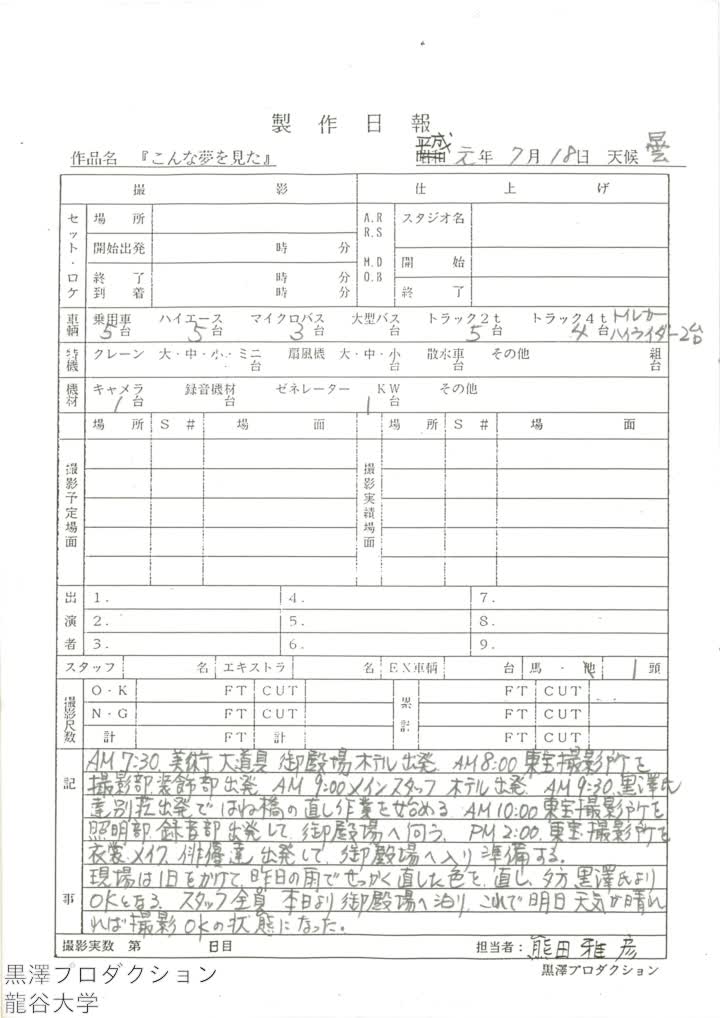 製作日報
作品名 『こんな夢を見た』 平成 元年 7月 18日 天候 曇
撮影 仕上げ
セット・ロケ 場所 A.R R.S スタジオ名
開始出発 時 分 M.D 開始
終了 時 分 O.B
到着 時 分 終了
車輌 乗用車 ハイエース マイクロバス 大型バス トラック2t トラック4t トイレカー
5台 5台 3台 台 5台 4台 ハイライダー2台
特機 クレーン 大・中・小・ミニ 扇風機 大・中・小 散水車 その他 組
台 台 台 台
機材 キャメラ 録音機材 ゼネレーター KW その他
1台 台 1台
場所 S# 場面 場所 S# 場面
撮影予定場面 撮影実績場面
出演者 1. 4. 7.
2. 5. 8.
3. 6. 9.
スタッフ 名 エキストラ 名 EX車輌 台 馬・他 1頭
撮影尺数 O・K FT CUT 累計 FT CUT
N・G FT CUT FT CUT
計 FT 計 FT CUT
記事
AM7:30 美術 大道具 御殿場ホテル出発 AM8:00 東宝撮影所を
撮影部装飾部出発 AM9:00メインスタッフ ホテル出発 AM9:30 黒澤氏
達別荘出発ではね橋の直し作業を始める AM10:00 東宝撮影所を
照明部、録音部出発して、御殿場へ向う、PM2:00、東宝撮影所を
衣裳、メイク、俳優達、出発して、御殿場へ入り準備する。
現場は1日をかけて、昨日の雨でせっかく直した色を、直し、夕方、黒澤氏より
OKとなる、スタッフ全員 本日より御殿場へ泊り、これで明日天気が晴れ
れば撮影OKの状態になった。
撮影実数 第 日目 担当者: 熊田雅彦
黒澤プロダクション
黒澤プロダクション
龍谷大学